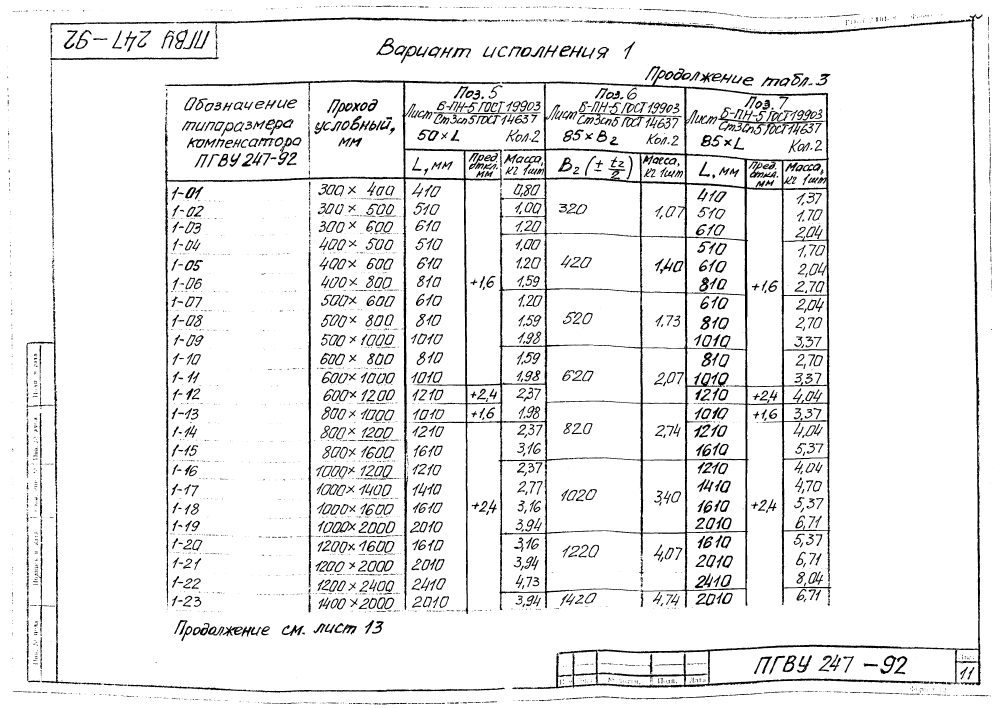 ПГВУ 247-92
Вариант исполнения 1
Продолжение табл. 3
Обозначение типаразмера компенсатора ПГВУ 247-92
Проход условный, мм
Поз. 5
Лист Б-ПН-5 ГОСТ 19903 / Ст3сп5 ГОСТ 14637
50×L Кол. 2
Поз. 6
Лист Б-ПН-5 ГОСТ 19903 / Ст3сп5 ГОСТ 14637
85×B2 Кол. 2
Поз. 7
Лист Б-ПН-5 ГОСТ 19903 / Ст3сп5 ГОСТ 14637
85×L Кол. 2
L, мм Пред. откл. мм Масса, кг 1шт B2 (± t2/2) Масса, кг 1шт L, мм Пред. откл. мм Масса, кг 1шт
1-01 300×400 410 0,80 410 1,37
1-02 300×500 510 1,00 320 1,07 510 1,70
1-03 300×600 610 1,20 610 2,04
1-04 400×500 510 1,00 510 1,70
1-05 400×600 610 1,20 420 1,40 610 2,04
1-06 400×800 810 +1,6 1,59 810 +1,6 2,70
1-07 500×600 610 1,20 610 2,04
1-08 500×800 810 1,59 520 1,73 810 2,70
1-09 500×1000 1010 1,98 1010 3,37
1-10 600×800 810 1,59 810 2,70
1-11 600×1000 1010 1,98 620 2,07 1010 3,37
1-12 600×1200 1210 +2,4 2,37 1210 +2,4 4,04
1-13 800×1000 1010 +1,6 1,98 1010 +1,6 3,37
1-14 800×1200 1210 2,37 820 2,74 1210 4,04
1-15 800×1600 1610 3,16 1610 5,37
1-16 1000×1200 1210 2,37 1210 4,04
1-17 1000×1400 1410 2,77 1020 3,40 1410 4,70
1-18 1000×1600 1610 +2,4 3,16 1610 +2,4 5,37
1-19 1000×2000 2010 3,94 2010 6,71
1-20 1200×1600 1610 3,16 1610 5,37
1-21 1200×2000 2010 3,94 1220 4,07 2010 6,71
1-22 1200×2400 2410 4,73 2410 8,04
1-23 1400×2000 2010 3,94 1420 4,74 2010 6,71
Продолжение см. лист 13
ПГВУ 247-92
11